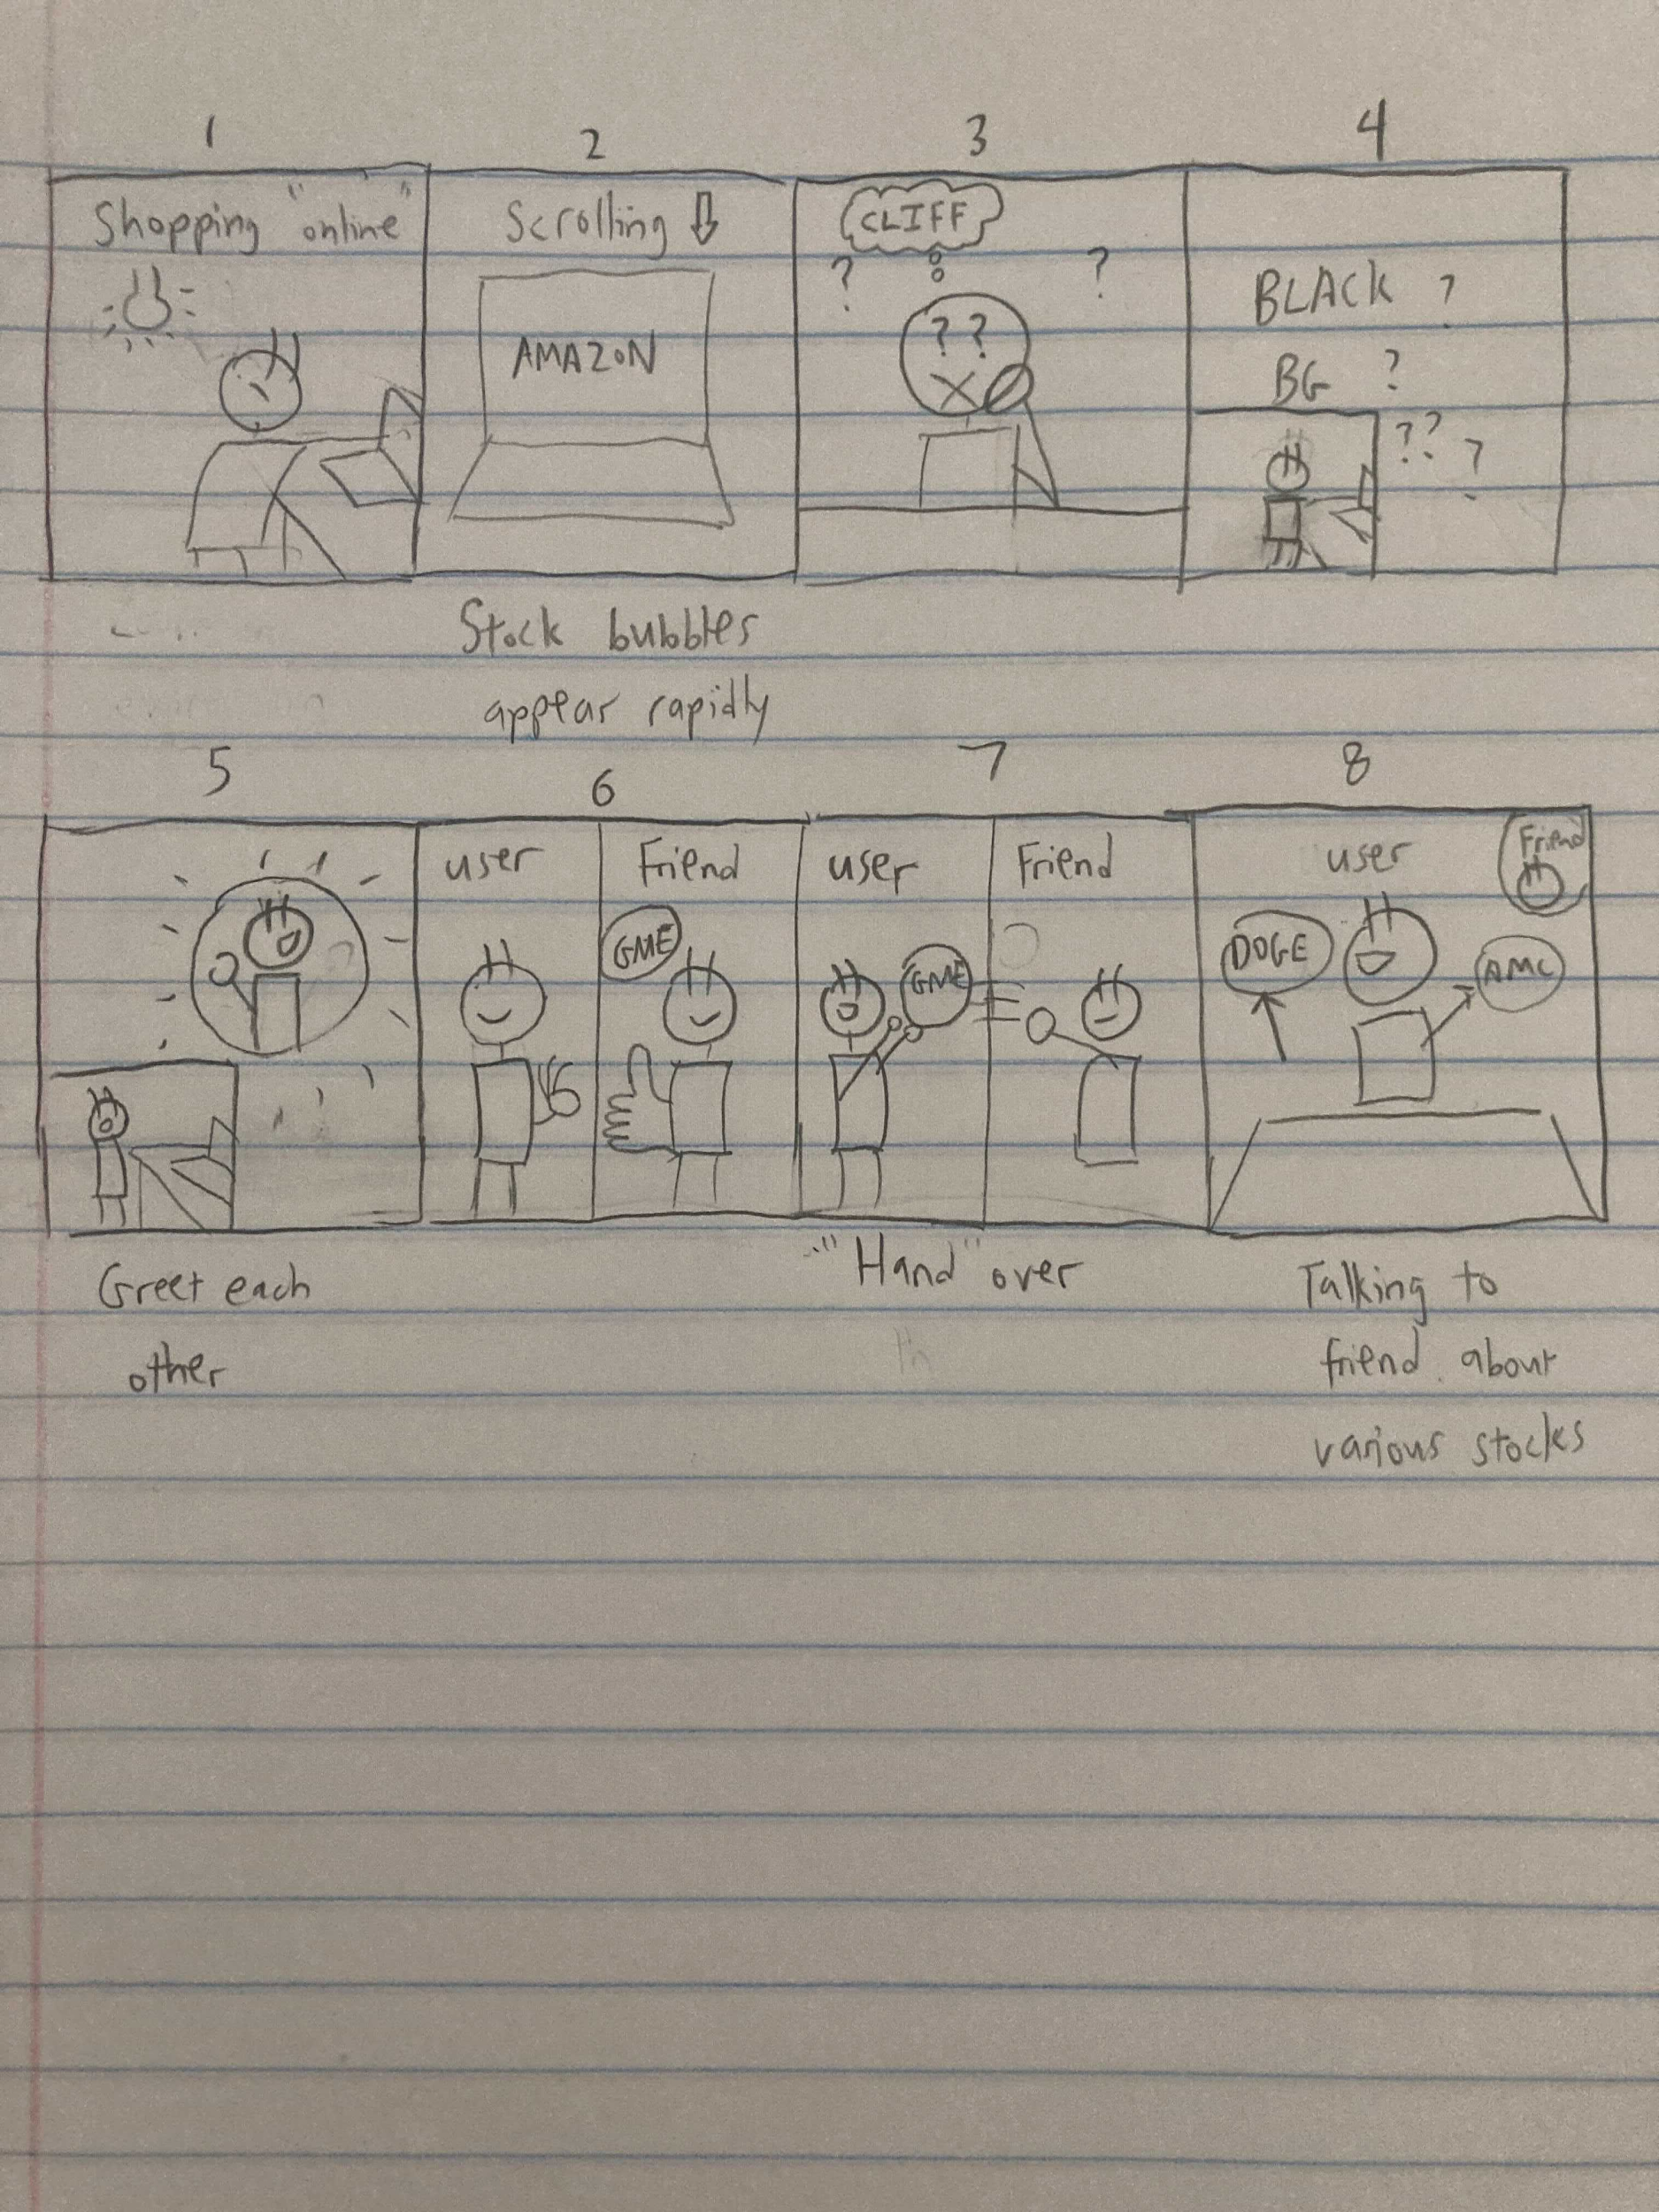 1
2
3
4
Shopping "online"
Scrolling
AMAZON
CLIFF
?
?
? ?
BLACK ?
BG ?
?? ?
Stock bubbles
appear rapidly
5
6
7
8
user
Friend
GME
user
Friend
GME
user
Friend
DOGE
AMC
Greet each
other
"Hand" over
Talking to
friend about
various stocks